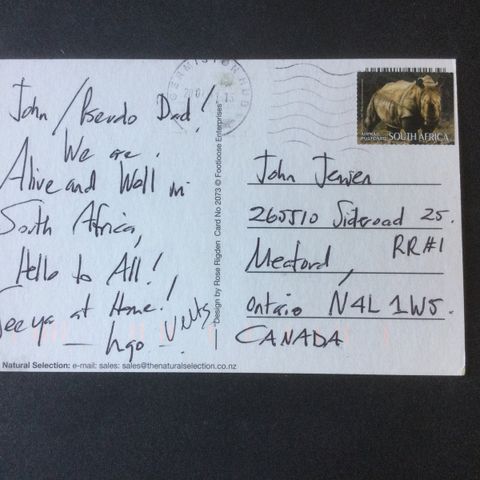 John / Pseudo Dad!
We are
Alive and Well in
South Africa,
Hello to All!
See ya at Home!
Natural Selection: e-mail: sales: sales@thenaturalselection.co.nz
Design by Rose Rigden Card No 2073 © Footloose Enterprises
GERMISTON HUB
AIRMAIL POSTCARD SOUTH AFRICA
John Jensen
265510 Sideroad 25.
RR#1
Meaford,
Ontario N4L 1W5.
CANADA